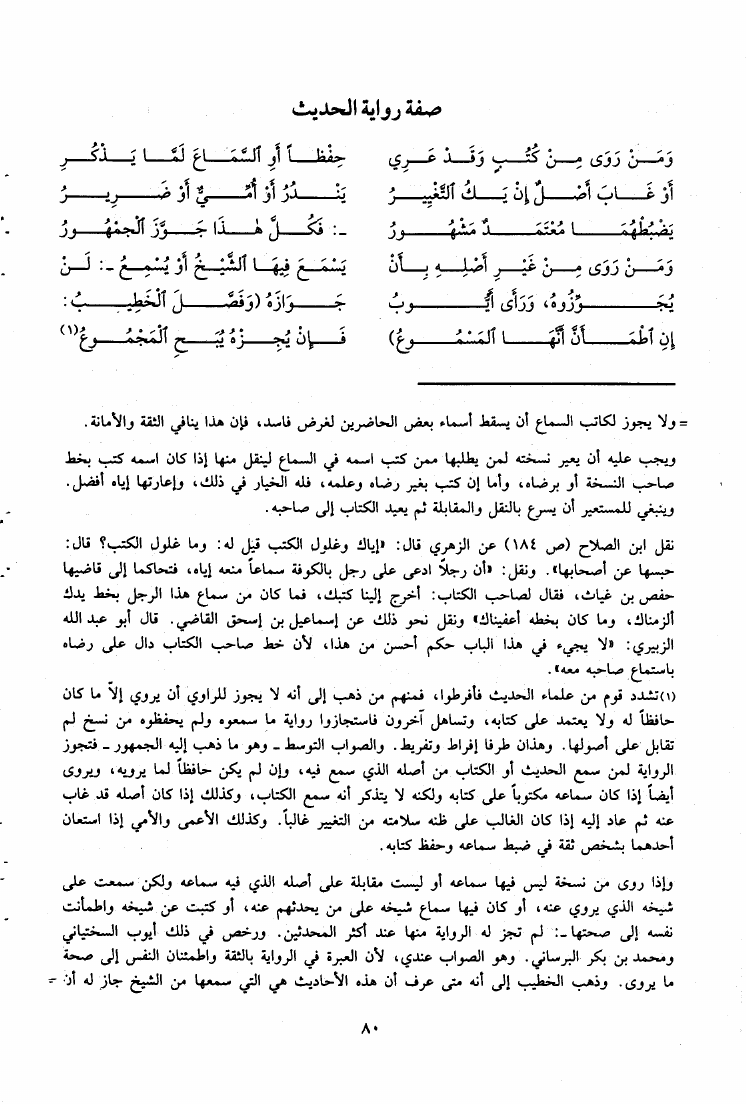 صفة رواية الحديث
وَمَنْ رَوَى مِنْ كُتُبٍ وَقَدْ عَرِي حِفْظاً أَوِ ٱلسَّمَاعَ لَمَّا يَذْكُرِ
أَوْ غَابَ أَصْلٌ إِنْ يَكُ ٱلتَّغْيِيرُ يَنْدُرُ أَوْ أُمِّيٌّ أَوْ ضَرِيرُ
يَضْبُطُهُمَا مُعْتَمَدٌ مَشْهُورُ -: فَكُلَّ هٰذَا جَوَّزَ ٱلْجُمْهُورُ
وَمَنْ رَوَى مِنْ غَيْرِ أَصْلِهِ بِأَنْ يَسْمَعَ فِيهَا ٱلشَّيْخُ أَوْ يُسْمِعُ -: لَنْ
يُجَوِّزُوهُ، وَرَأَى أَيُّوبُ جَوَازَهُ (وَفَصَّلَ ٱلْخَطِيبُ:
إِنِ ٱطْمَأَنَّ أَنَّهَا ٱلمَسْمُوعُ) فَإِنْ يُجِزْهُ يُبَحِ ٱلْمَجْمُوعُ(١)
= ولا يجوز لكاتب السماع أن يسقط أسماء بعض الحاضرين لغرض فاسد، فإن هذا ينافي الثقة والأمانة.
ويجب عليه أن يعير نسخته لمن يطلبها ممن كتب اسمه في السماع لينقل منها إذا كان اسمه كتب بخط
صاحب النسخة أو برضاه، وأما إن كتب بغير رضاه وعلمه، فله الخيار في ذلك، وإعارتها إياه أفضل.
وينبغي للمستعير أن يسرع بالنقل والمقابلة ثم يعيد الكتاب إلى صاحبه.
نقل ابن الصلاح (ص ١٨٤) عن الزهري قال: «إياك وغلول الكتب قيل له: وما غلول الكتب؟ قال:
حبسها عن أصحابها». ونقل: «أن رجلاً ادعى على رجل بالكوفة سماعاً منعه إياه، فتحاكما إلى قاضيها
حفص بن غياث، فقال لصاحب الكتاب: أخرج إلينا كتبك، فما كان من سماع هذا الرجل بخط يدك
ألزمناك، وما كان بخطه أعفيناك» ونقل نحو ذلك عن إسماعيل بن إسحق القاضي. قال أبو عبد الله
الزبيري: «لا يجيء في هذا الباب حكم أحسن من هذا، لأن خط صاحب الكتاب دال على رضاه
باستماع صاحبه معه».
(١)تشدد قوم من علماء الحديث فأفرطوا، فمنهم من ذهب إلى أنه لا يجوز للراوي أن يروي إلاّ ما كان
حافظاً له ولا يعتمد على كتابه، وتساهل آخرون فاستجازوا رواية ما سمعوه ولم يحفظوه من نسخ لم
تقابل على أصولها. وهذان طرفا إفراط وتفريط. والصواب التوسط - وهو ما ذهب إليه الجمهور - فتجوز
الرواية لمن سمع الحديث أو الكتاب من أصله الذي سمع فيه، وإن لم يكن حافظاً لما يرويه، ويروى
أيضاً إذا كان سماعه مكتوباً على كتابه ولكنه لا يتذكر أنه سمع الكتاب، وكذلك إذا كان أصله قد غاب
عنه ثم عاد إليه إذا كان الغالب على ظنه سلامته من التغيير غالباً. وكذلك الأعمى والأمي إذا استعان
أحدهما بشخص ثقة في ضبط سماعه وحفظ كتابه.
وإذا روى من نسخة ليس فيها سماعه أو ليست مقابلة على أصله الذي فيه سماعه ولكن سمعت على
شيخه الذي يروي عنه، أو كان فيها سماع شيخه على من يحدثهم عنه، أو كتبت عن شيخه واطمأنت
نفسه إلى صحتها -: لم تجز له الرواية منها عند أكثر المحدثين. ورخص في ذلك أيوب السختياني
ومحمد بن بكر البرساني. وهو الصواب عندي، لأن العبرة في الرواية بالثقة واطمئنان النفس إلى صحة
ما يروى. وذهب الخطيب إلى أنه متى عرف أن هذه الأحاديث هي التي سمعها من الشيخ جاز له أن =
٨٠